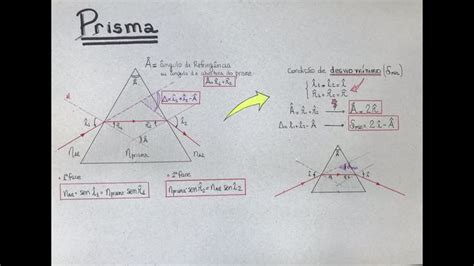 Prisma
Â = ângulo de Refringência
ou ângulo de abertura do prisma
Δ = î₁ + î₂ - Â
A
î₁
r̂₁
r̂₂
î₂
Â
n_AR
n_prisma
n_AR
• 1ª face
n_AR . sen î₁ = n_prisma sen r̂₁
• 2ª face
n_prisma . sen r̂₂ = n_AR . sen î₂
Condição de desvio mínimo (δ_min)
î₁ = î₂ = î
r̂₁ = r̂₂ = r̂
Â = r̂₁ + r̂₂ → Â = 2r̂
Δ = î₁ + î₂ - Â → δ_min = 2î - Â